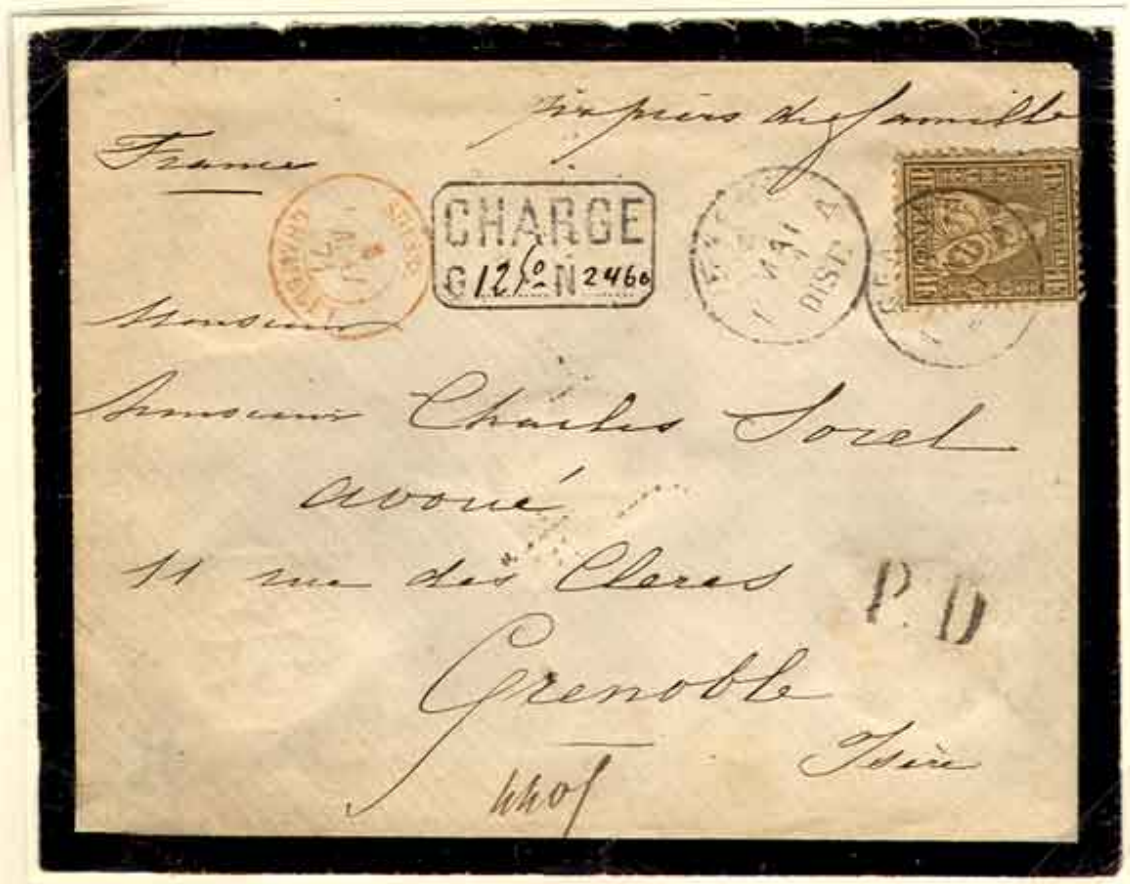 papiers de famille
France
CHARGE
G 12 N 2460
DIST. 4
Monsieur
Monsieur Charles Sorel
avoué
11 rue des Clercs
P.D
Grenoble
Isère
4405